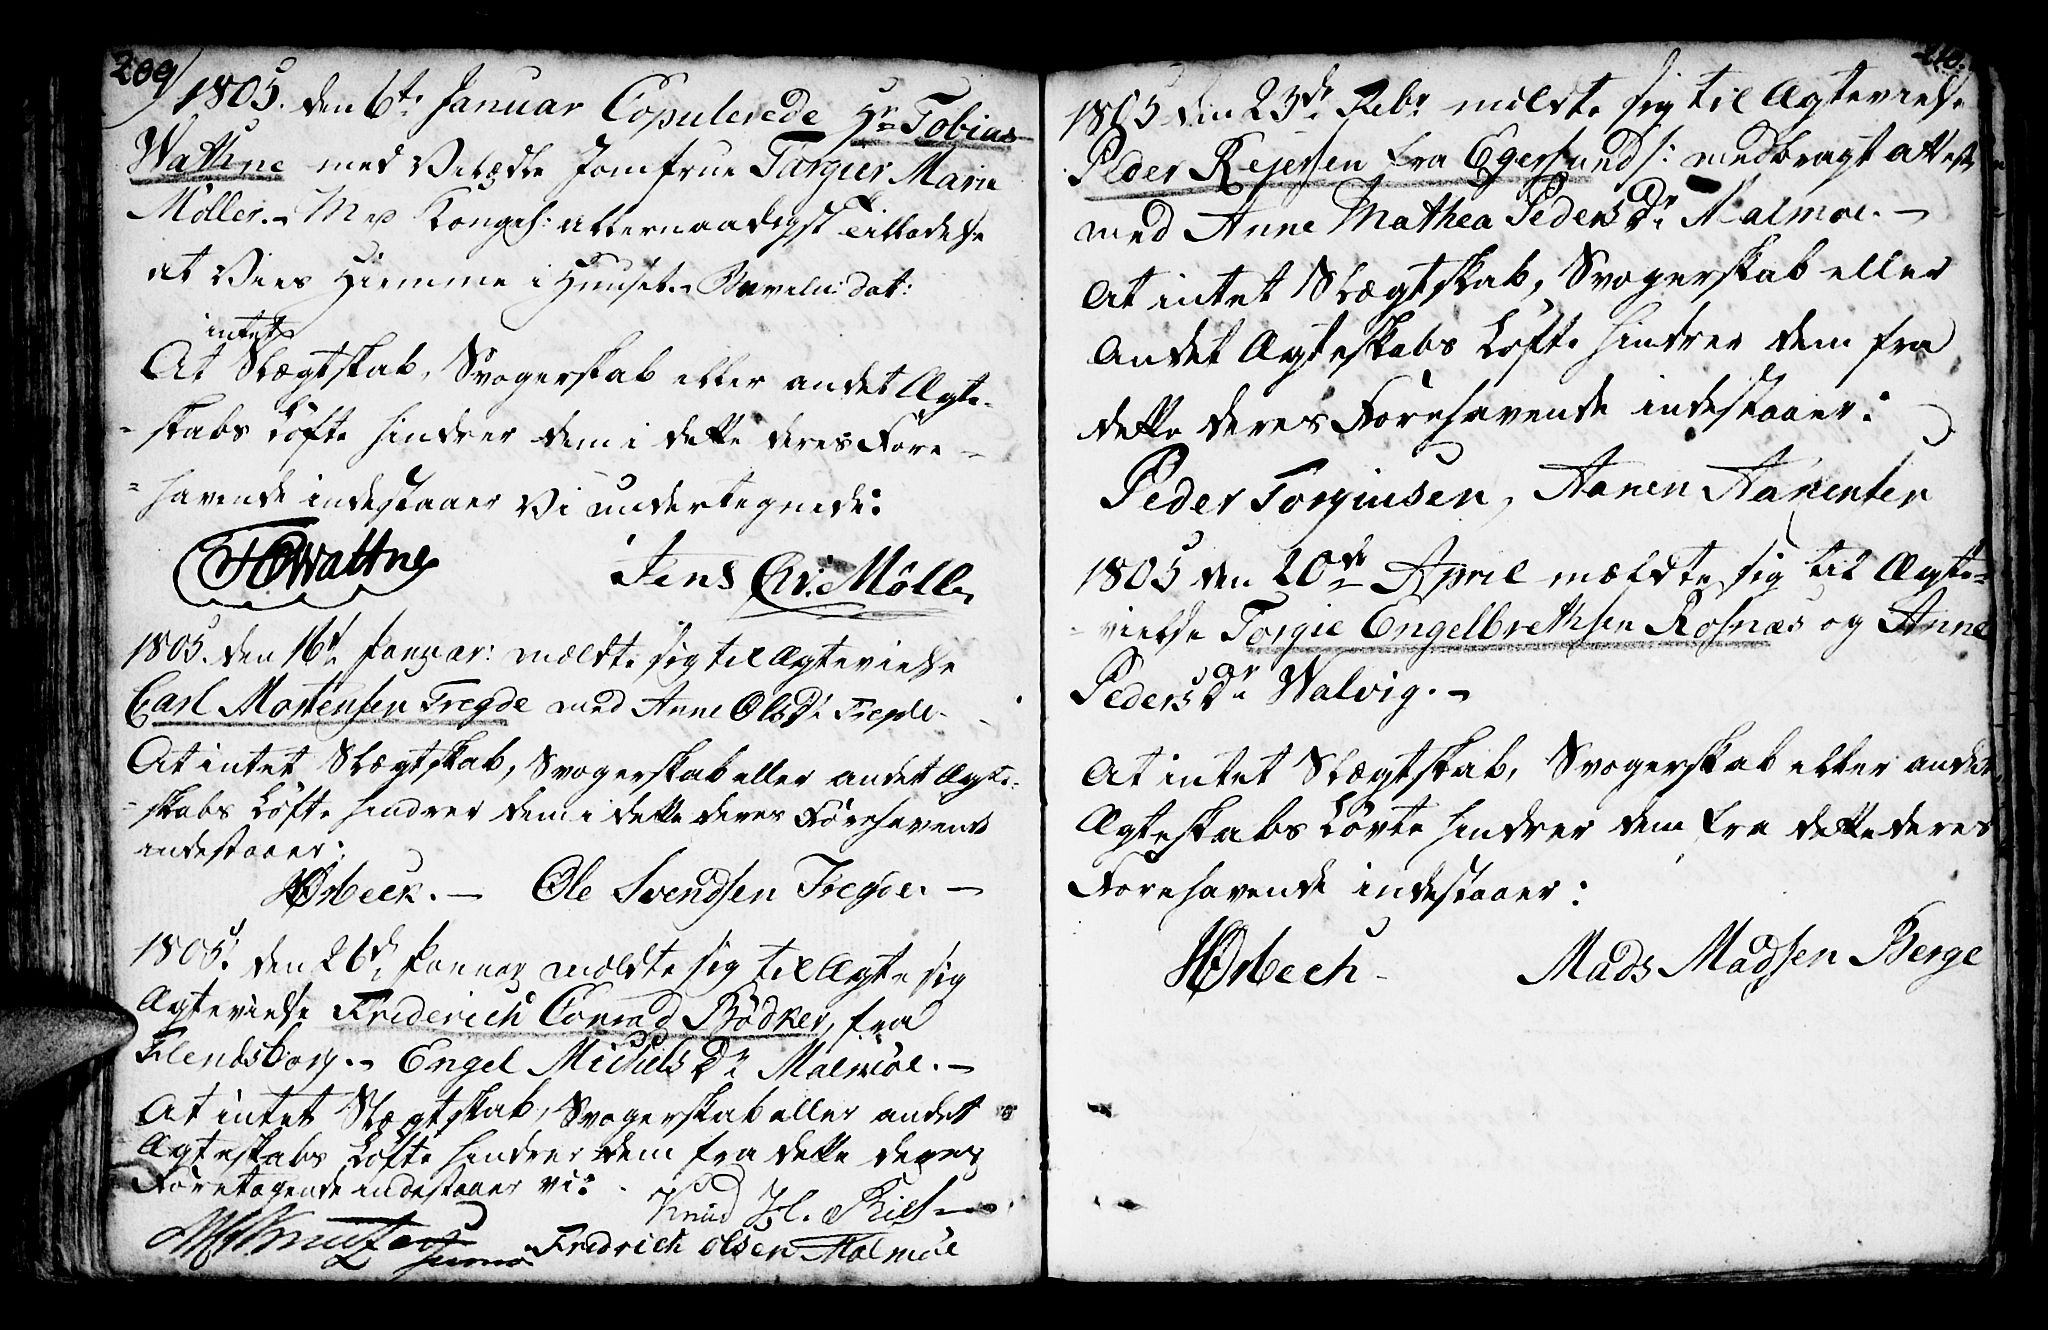 209/
1805. den 6te Januar Copulerede Hr Tobias
Wattne med Velædle Jomfrue Torgier Marie
Möller. - Med Kongel: allernaadigst Tilladelse
at Vies Hiemme i Huuset. - dat:
intet
At Slægtskab, Svogerskab eller andet Ægte-
-skabs Löfte hindrer dem i dette deres Fore-
-havende indestaaer Vi undertegnede:
Wattne Jens Chr: Möller
1805. den 16de Januar: meldte sig til Ægtevielse
Carl Mortensen Tregde med Anne OlsDr Tregde -
At intet Slægtskab, Svogerskab eller andet Ægte-
-skabs Löfte hindrer dem i dette deres Forehavende
indestaaer:
Orbeck. - Ole Svendsen Tregde. -
1805. den 26de Januar meldte sig til Ægte sig
Ægtevielse Friderich Conrad Bödker, fra
Flendsborg. - Engel MichelsDr Malmöe. -
At intet Slægtskab, Svogerskab eller andet
Ægteskabs Löfte hindrer dem fra dette deres
Foretagende indestaaer vi:
Knud H. Riis
Knutzen Fredrich Olsen Malmöe
210.
1805 den 23de Febr meldte sig til Ægtevielse
Peder Rejersen fra Egersund /: medbragt Attest
med Anne Mathea PedersDr Malmöe. -
At intet Slægtskab, Svogerskab eller
andet Ægteskabs Löfte hindrer dem fra
dette deres Forehavende indestaaer:
Peder Torgiusen, Aanen Aanensen
1805 den 20de April meldte sig til Ægte-
-vielse Torgie Engelbrethsen Rosnæs og Anne
PedersDr Walvig. -
At intet Slægtskab, Svogerskab eller andet
Ægteskabs Lövte hindrer dem fra dette deres
Forehavende indestaaer:
Orbech - Mads Madsen Berge